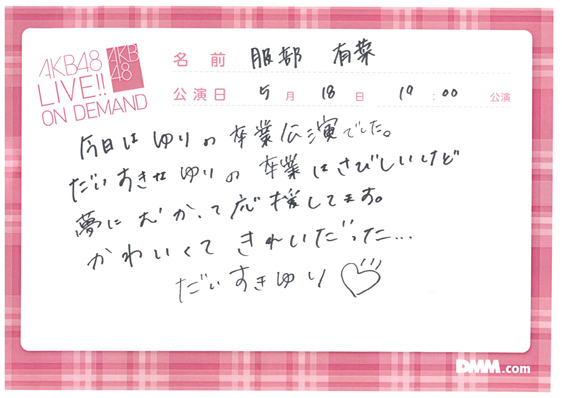 AKB48
LIVE!!
ON DEMAND
AKB
48
名前 服部 有菜
公演日 5月 18日 19:00 公演
今日は ゆりの 卒業公演でした。
だいすきな ゆりの 卒業は さびしいけど
夢に むかって 応援してます。
かわいくて きれいだった…
だいすき ゆり♡
DMM.com